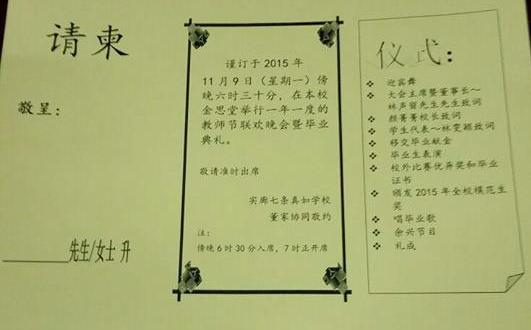 请柬
敬呈：
先生/女士 升
谨订于 2015 年
11 月 9 日（星期一）傍
晚六时三十分，在本校
金思堂举行一年一度的
教师节联欢晚会暨毕业
典礼。
敬请准时出席
实廊七条真如学校
董家协同敬约
注：
傍晚 6 时 30 分入席，7 时正开席
仪式：
迎宾舞
大会主席暨董事长～
林声留先生先生致词
颜菁菁校长致词
学生代表～林雯颖致词
移交毕业献金
毕业生表演
校外比赛优异奖和毕业
证书
颁发 2015 年全校模范生
奖
唱毕业歌
余兴节目
礼成